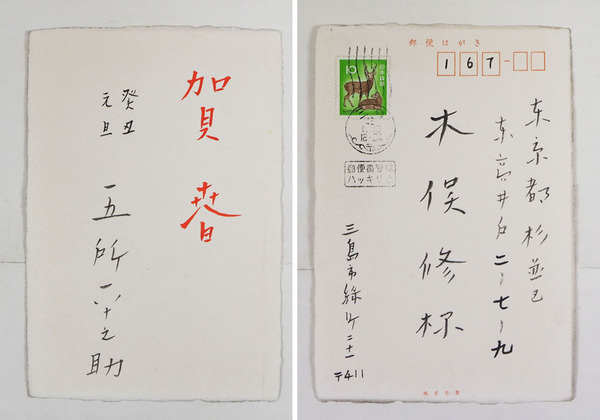 賀春
癸丑
元旦
五所平之助
郵便はがき
167-
10
日本郵便
郵便番号は
ハッキリと
東京都杉並区
東高井戸二ノ七ノ九
木俣修様
三島市緑ケ
〒411